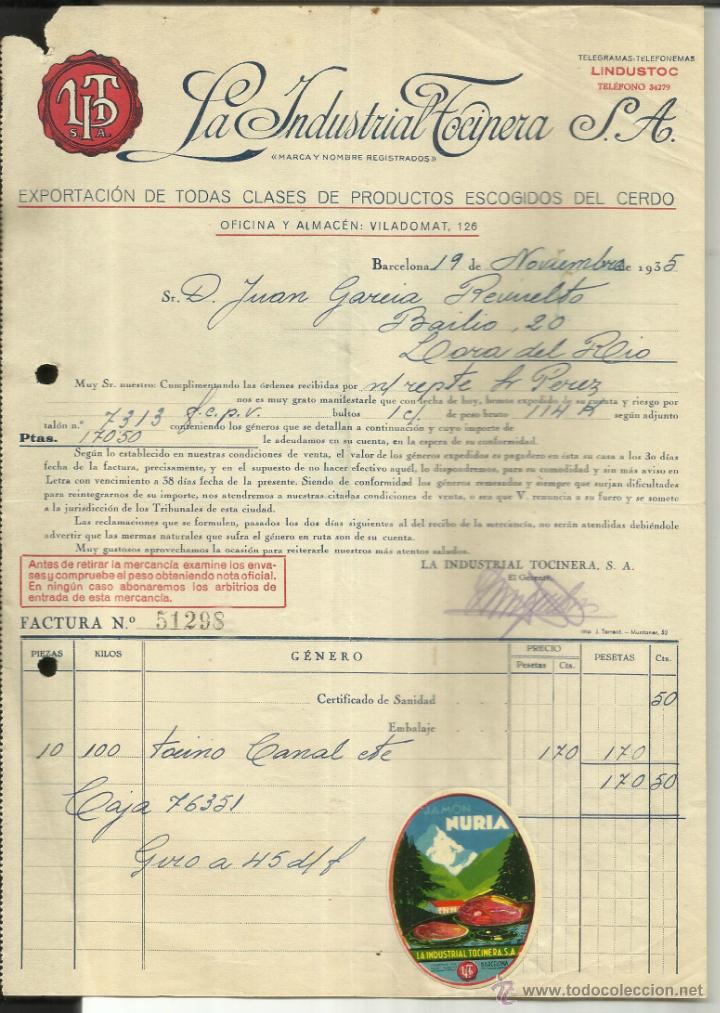 TELEGRAMAS-TELEFONEMAS
LINDUSTOC
TELÉFONO 34179
LIT
S. A.
La Industrial Tocinera S.A.
«MARCA Y NOMBRE REGISTRADOS»
EXPORTACIÓN DE TODAS CLASES DE PRODUCTOS ESCOGIDOS DEL CERDO
OFICINA Y ALMACÉN: VILADOMAT, 126
Barcelona 19 de Noviembre de 1935
Sr. D. Juan Garcia Revuelto
Bailio, 20
Lora del Rio
Muy Sr. nuestro: Cumplimentando las órdenes recibidas por n/ repte Sr Perez
nos es muy grato manifestarle que con fecha de hoy, hemos expedido de su cuenta y riesgo por
talón n.º 7313 g.c.p.v. bultos 1 c/ de peso bruto 114 K según adjunto
conteniendo los géneros que se detallan a continuación y cuyo importe de
Ptas. 170'50 le adeudamos en su cuenta, en la espera de su conformidad.
Según lo establecido en nuestras condiciones de venta, el valor de los géneros expedidos es pagadero en ésta su casa a los 30 días
fecha de la factura, precisamente, y en el supuesto de no hacer efectivo aquél, lo dispondremos, para su comodidad y sin más aviso en
Letra con vencimiento a 38 días fecha de la presente. Siendo de conformidad los géneros remesados y siempre que surjan dificultades
para reintegrarnos de su importe, nos atendremos a nuestras citadas condiciones de venta, o sea que V. renuncia a su fuero y se somete
a la jurisdicción de los Tribunales de esta ciudad.
Las reclamaciones que se formulen, pasados los dos días siguientes al del recibo de la mercancía, no serán atendidas debiéndole
advertir que las mermas naturales que sufra el género en ruta son de su cuenta.
Muy gustosos aprovechamos la ocasión para reiterarle nuestros más atentos saludos.
LA INDUSTRIAL TOCINERA, S. A.
El Gerente,
Antes de retirar la mercancía examine los enva-
ses y compruebe el peso obteniendo nota oficial.
En ningún caso abonaremos los arbitrios de
entrada de esta mercancía.
FACTURA N.º 51298
Imp. J. Torrent. - Muntaner, 52
PIEZAS KILOS GÉNERO PRECIO PESETAS Cts.
Pesetas Cts.
Certificado de Sanidad 50
Embalaje
10 100 tocino Canal ete 170 170
170 50
Caja 76351
Giro a 45 d/f
JAMON
NURIA
LA INDUSTRIAL TOCINERA, S.A.
BARCELONA
www.todocoleccion.net